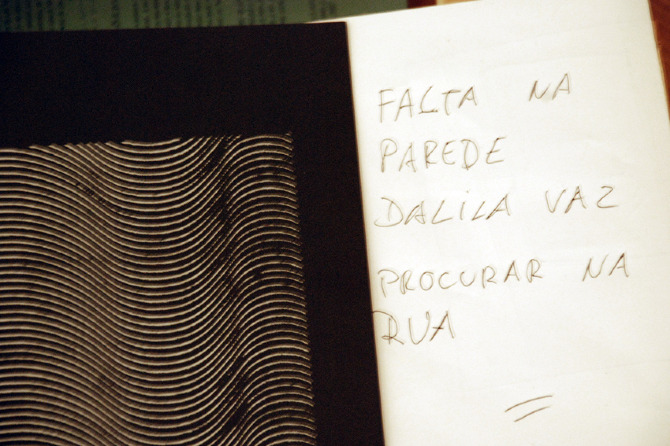 FALTA NA
PAREDE
DALILA VAZ
PROCURAR NA
RUA